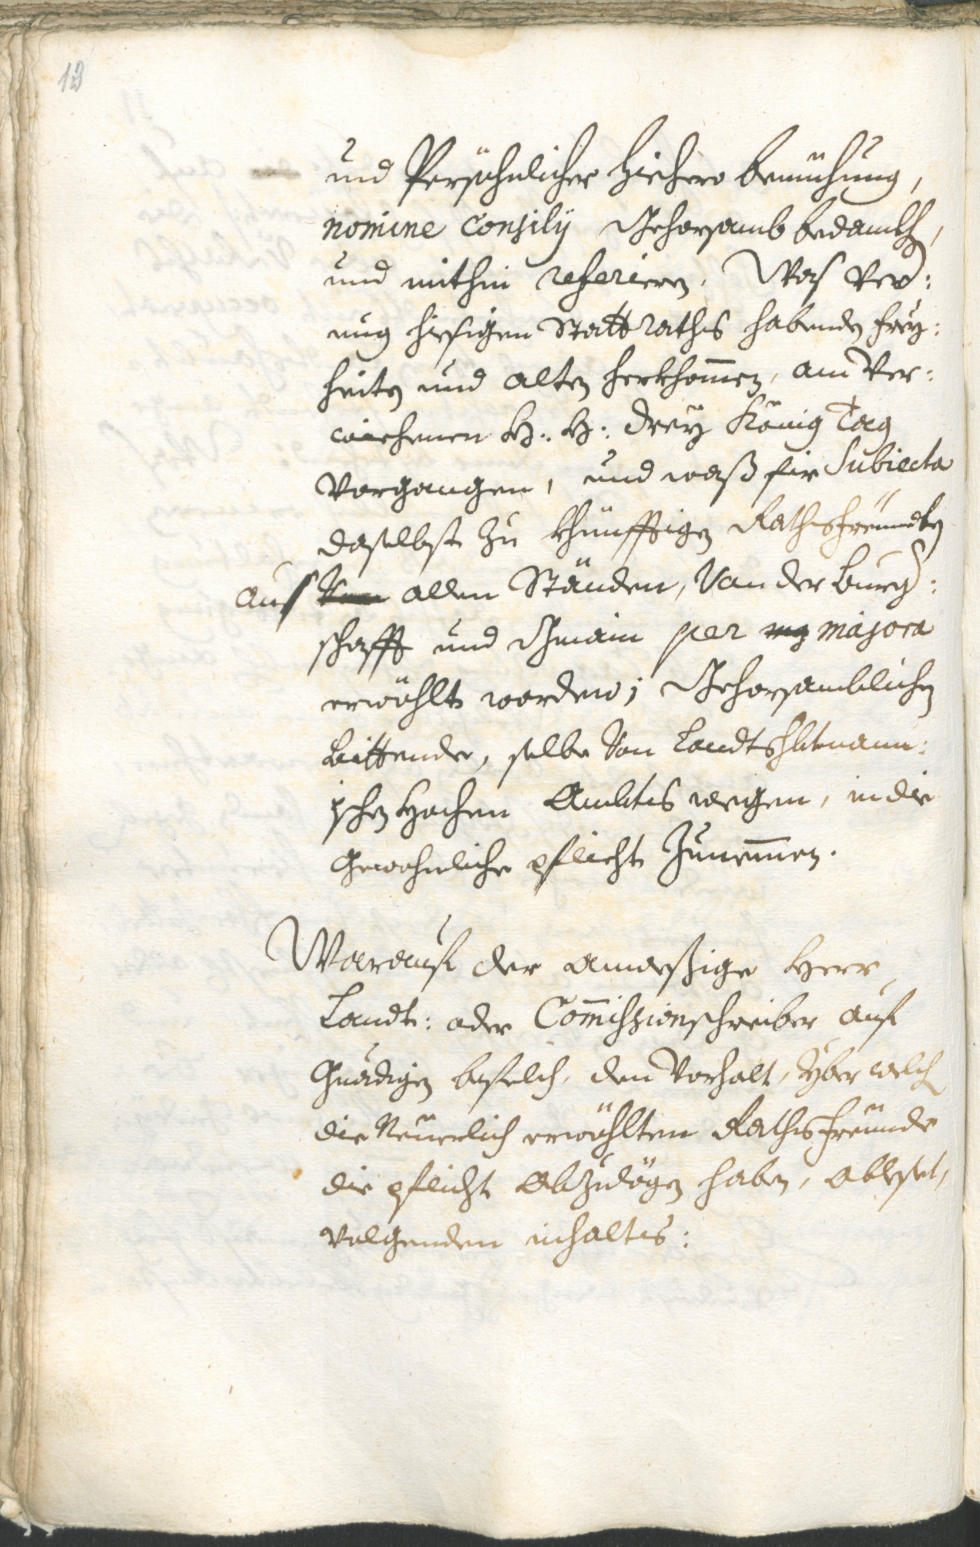 13
und Persöhnlicher hiehero bemüehung,
nomine Consilÿ Gehorsamb bedankh,
und mithin referiern, Was Ver:
mög hiesigen Stattraths habenden Frey:
heiten und alten herkhom̄en, am Ver:
wichenen H: H: Dreÿ König Tag
Vorgangen, und waß für Subiecta
daselbst zu khünfftigen Rathsfreündten
aus Von allen Ständen, Von der Burg:
schafft und Gmain per mg majora
erwöhlt worden; Gehorsamblichen
bittende, selbe Von Landtshbtmann:
ischen hochen Ambts wegen, in die
Gewohnliche pflicht Zunem̄en.
Warauf der anwesßige Herr
Landt: oder Com̄issionschreiber auf
Gnädigen befelch, den Vorhalt, yber welch
die Neuerlich erwöhlten Rathsfreunde
die pflicht Abzulögen haben, ablesst,
Volgenden inhalts: